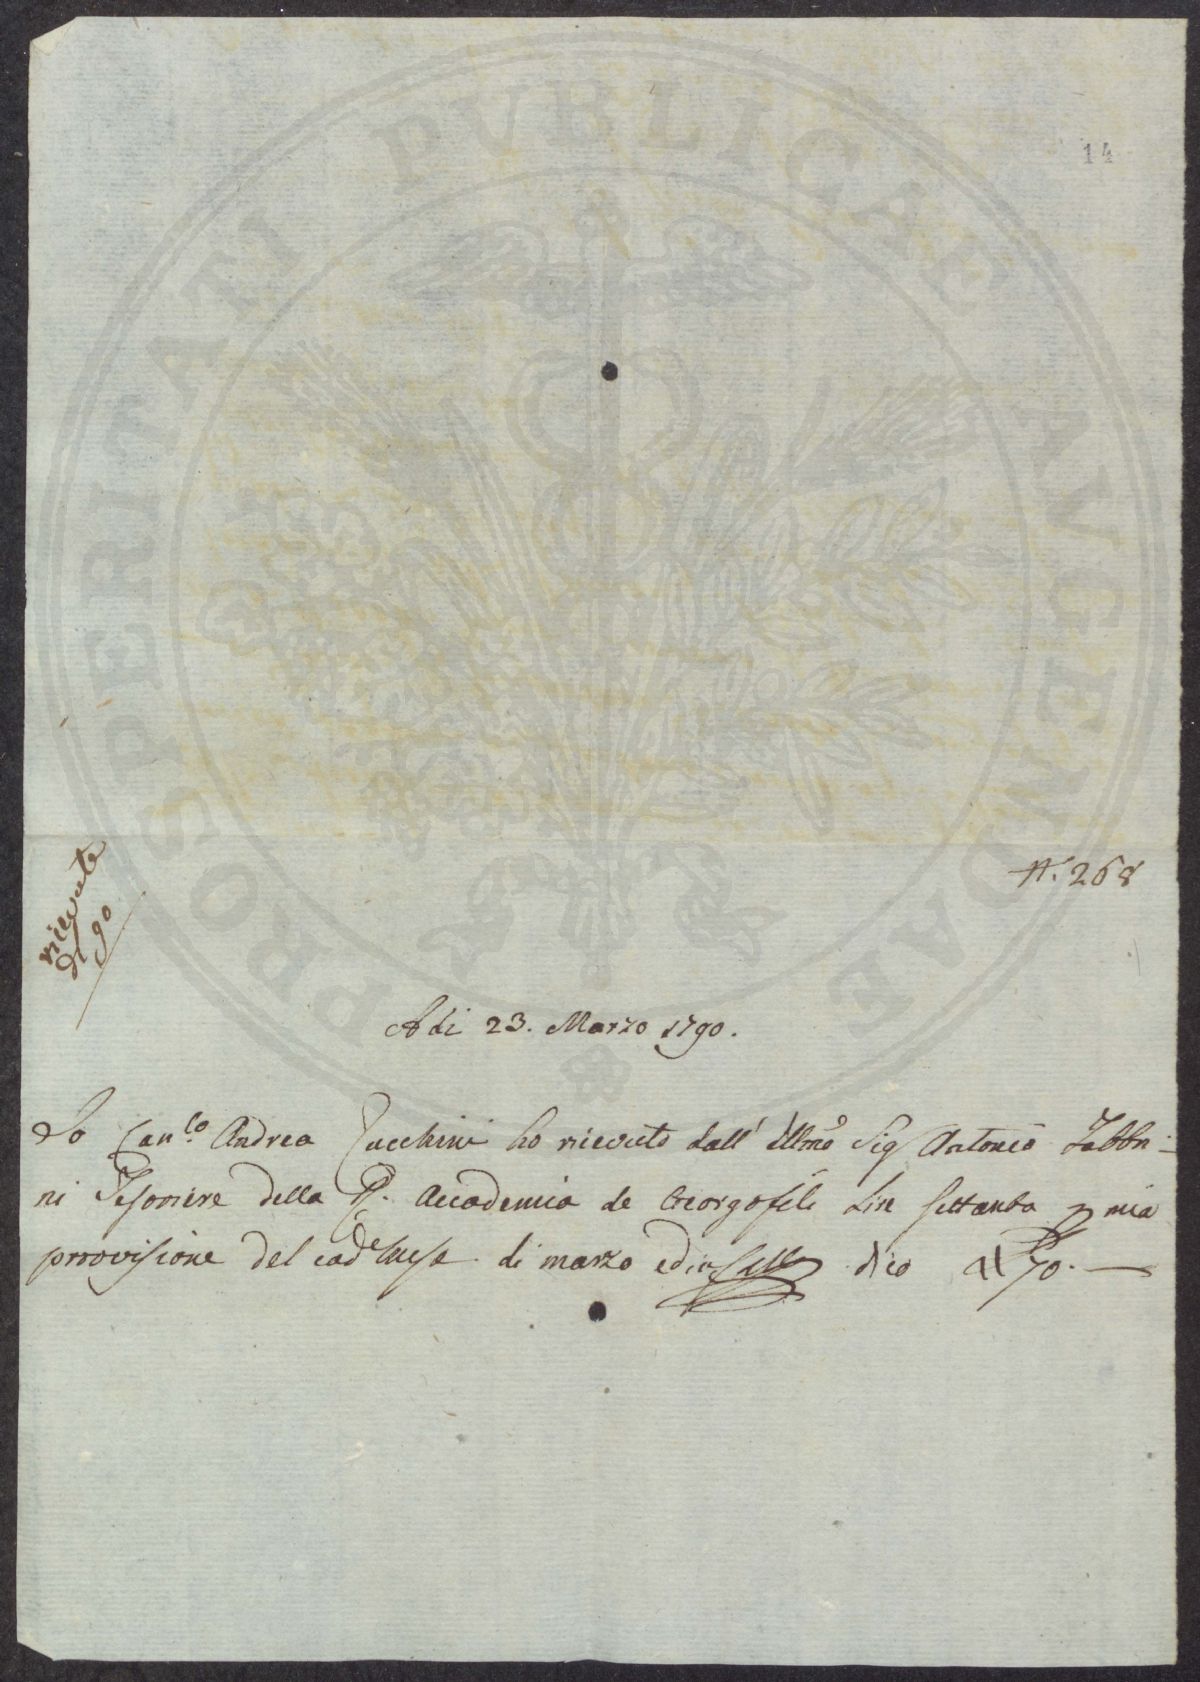 PROSPERITATI PUBLICAE AVGENDAE
14
N. 268
ricevute
di 90
A di 23. Marzo 1790.
Io Can.co Andrea Zucchini ho ricevuto dall' Illmo Sig Antonio Fabbri-
ni Tesoriere della R. Accademia de Georgofili Lire settanta p mia
provvisione del cad.e mese di marzo ed in dico 70.